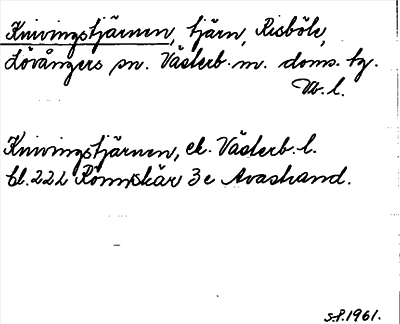 Knivingstjärnen, tjärn, Risböle,
Lövångers sn. Västerb. m. doms. tg.
Vb. l.
Knivingstjärnen, ek. Västerb. l.
bl. 22L Rönnskär 3e Avastrand.
s.f. 1961.